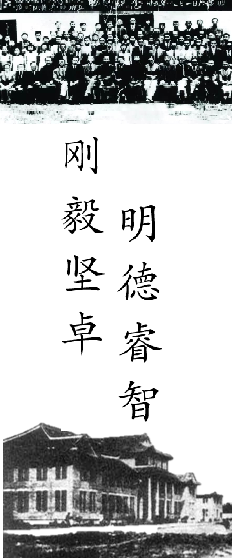 明德睿智
刚毅坚卓